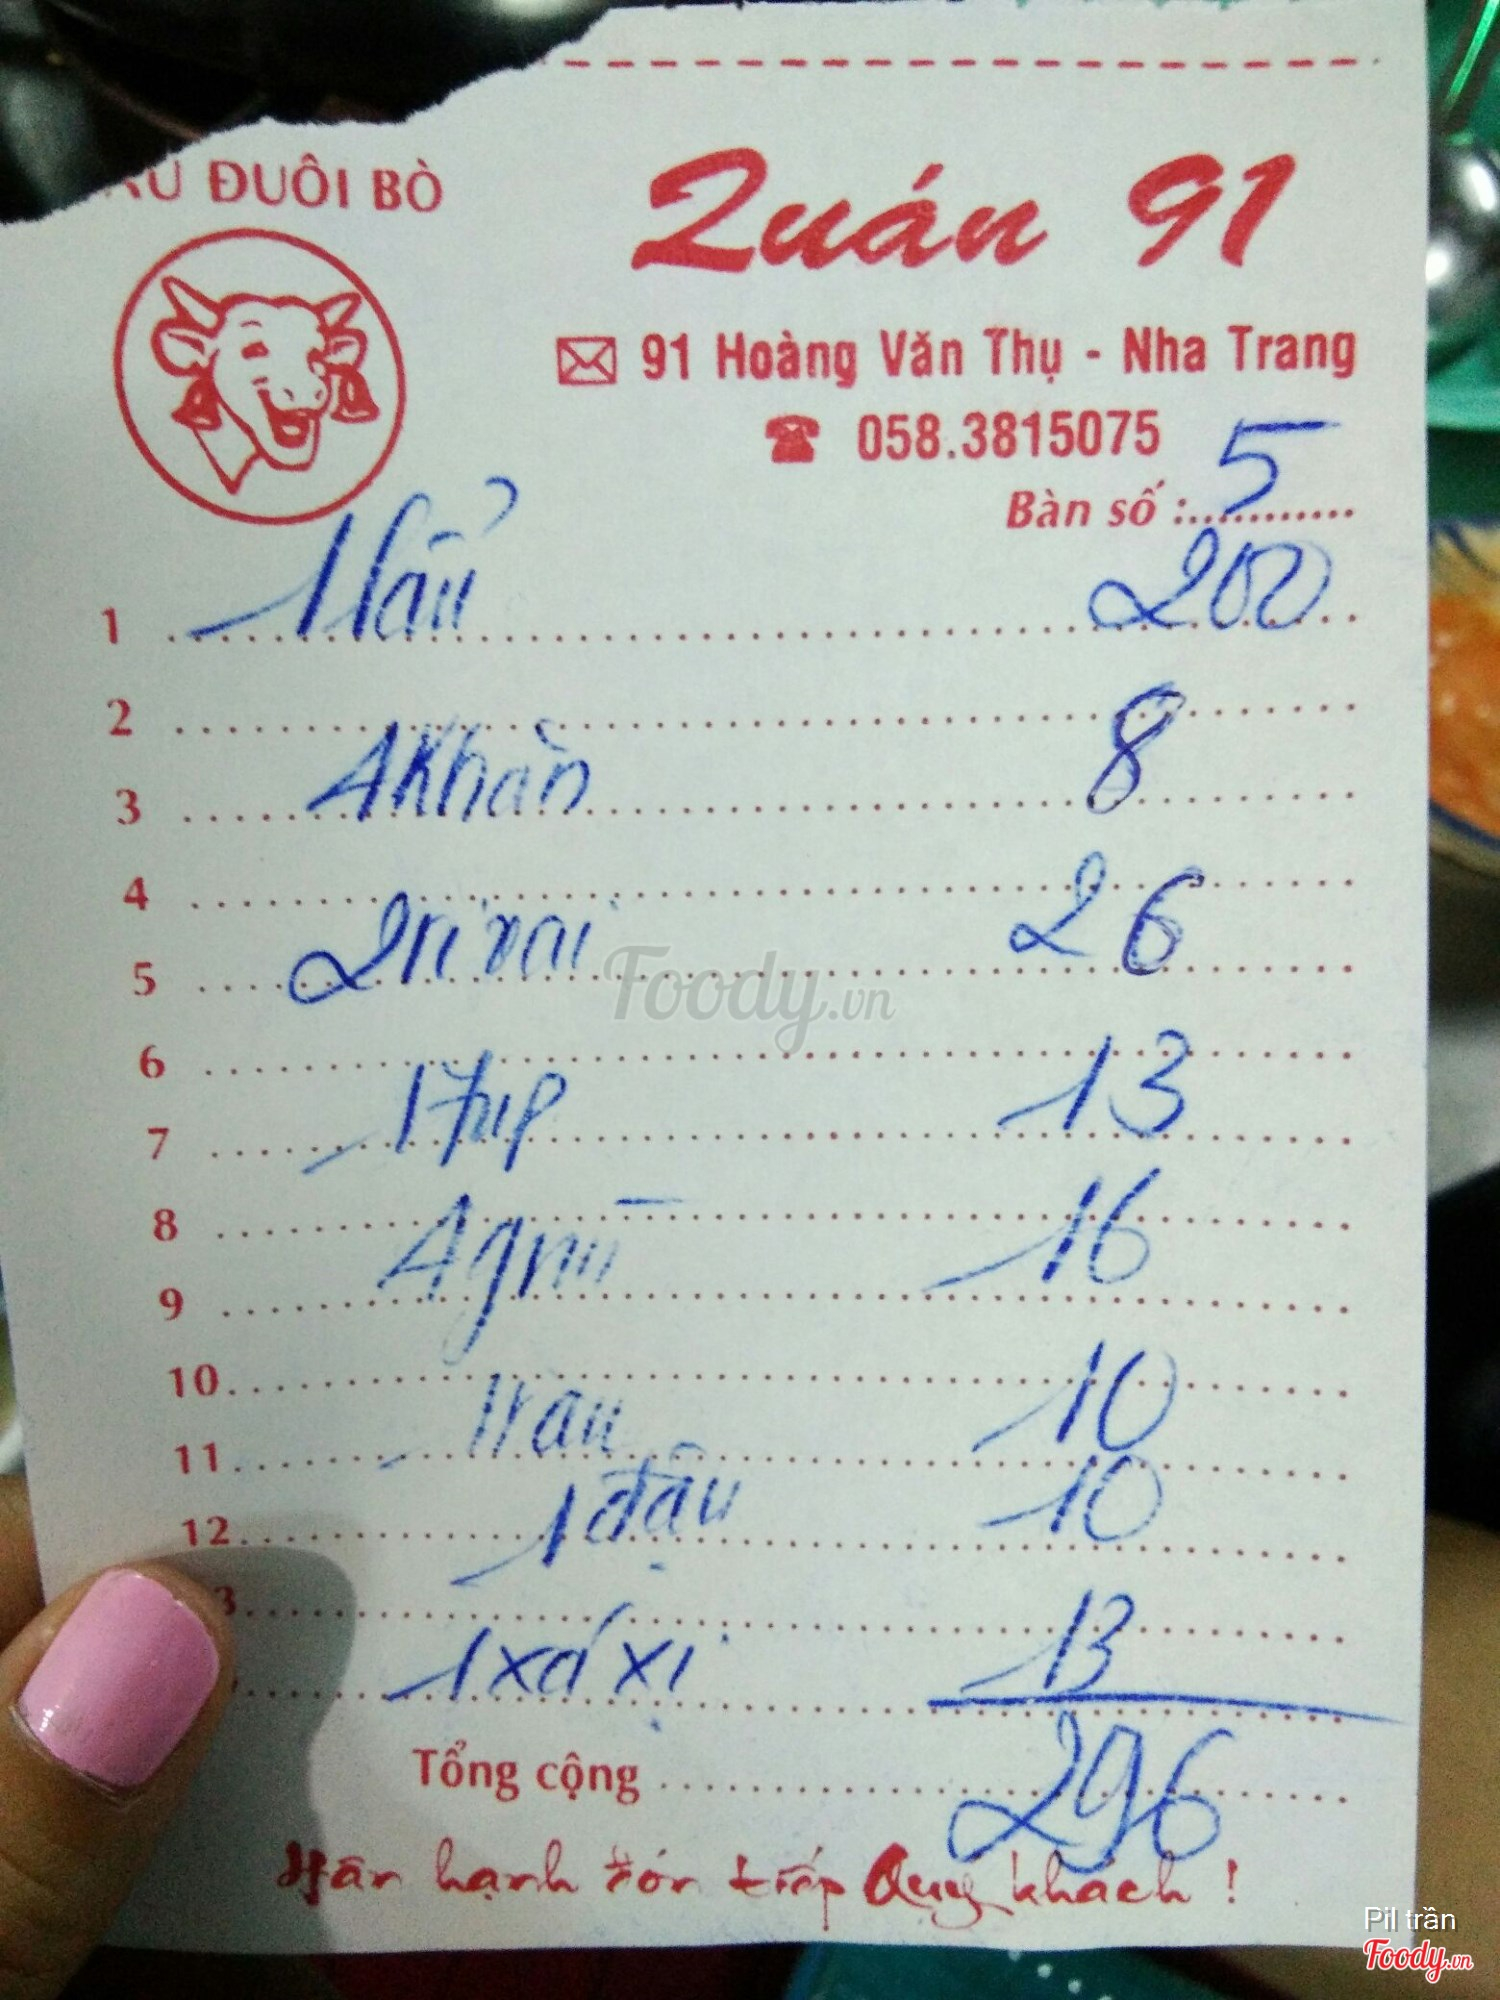 ẨU ĐUÔI BÒ
Quán 91
91 Hoàng Văn Thụ - Nha Trang
058.3815075
Bàn số : 5
1 1 lẩu 200
2
3 4 Khăn 8
4
5 26
6
7 13
8
9 16
10
11 1 rau 10
12 1 đậu 10
13
1 xá xị 13
Tổng cộng 296
Hân hạnh đón tiếp Quý khách !
Foody.vn
Pil trần
Foody.vn